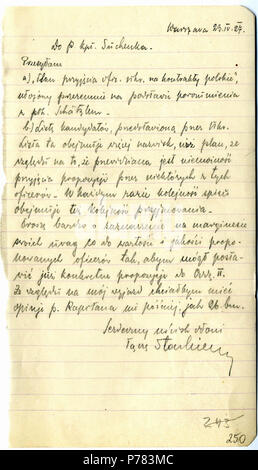 Warszawa 23.IV.27.
Do P. kpt. Suchenka.
Przesyłam
a) „Plan przyjęcia ofic. ukr. na kontrakty polskie",
ułożony przezemnie na podstawie porozumienia
z płk. Schätzlem.
b) Listę kandydatów, przedstawioną przez Ukr.
Lista ta obejmuje więcej nazwisk, niż plan, ze
względu na to, że przewidziana jest niemożność
przyjęcia propozycji przez niektórych z tych
oficerów. W każdym razie kolejność spisu
obejmuje też kolejność przyjmowania.
Proszę bardzo o zaznaczenie na marginesie
swoich uwag co do wartości i jakości propo-
nowanych oficerów tak, abym mógł posta-
wić już konkretne propozycje do Oddz. II.
Ze względu na mój wyjazd chciałbym mieć
opinję p. Kapitana nie później, jak 26 bm.
Serdeczny uścisk dłoni
245
250